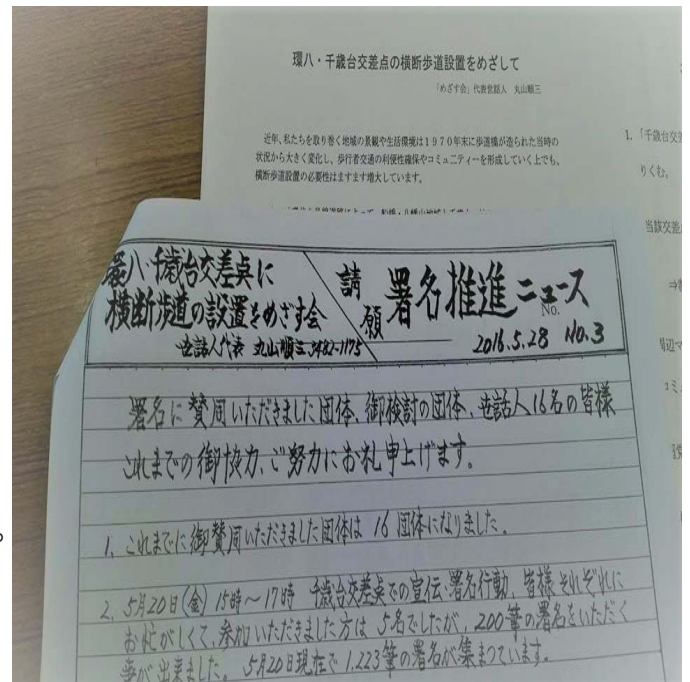 環八・千歳台交差点の横断歩道設置をめざして
「めざす会」代表世話人 丸山順三
近年、私たちを取り巻く地域の景観や生活環境は1970年末に歩道橋が造られた当時の
状況から大きく変化し、歩行者交通の利便性確保やコミュニティーを形成していく上でも、
横断歩道設置の必要性はますます増大しています。
1. 「千歳台交差
りくむ。
当該交差
環八・千歳台交差点に
横断歩道の設置をめざす会
世話人代表 丸山順三 3482-1175
請願 署名推進ニュース
No.
2016.5.28 No.3
署名に賛同いただきました団体、御検討の団体、世話人16名の皆様
これまでの御協力、ご努力にお礼申上げます。
1、これまでに御賛同いただきました団体は 16団体になりました。
2、5月20日(金) 15時〜17時 千歳台交差点での宣伝、署名行動、皆様それぞれに
お忙がしくて、参加いただきました方は 5名でしたが、200筆の署名をいただく
事が出来ました。 5月20日現在で 1.223筆の署名が集まっています。